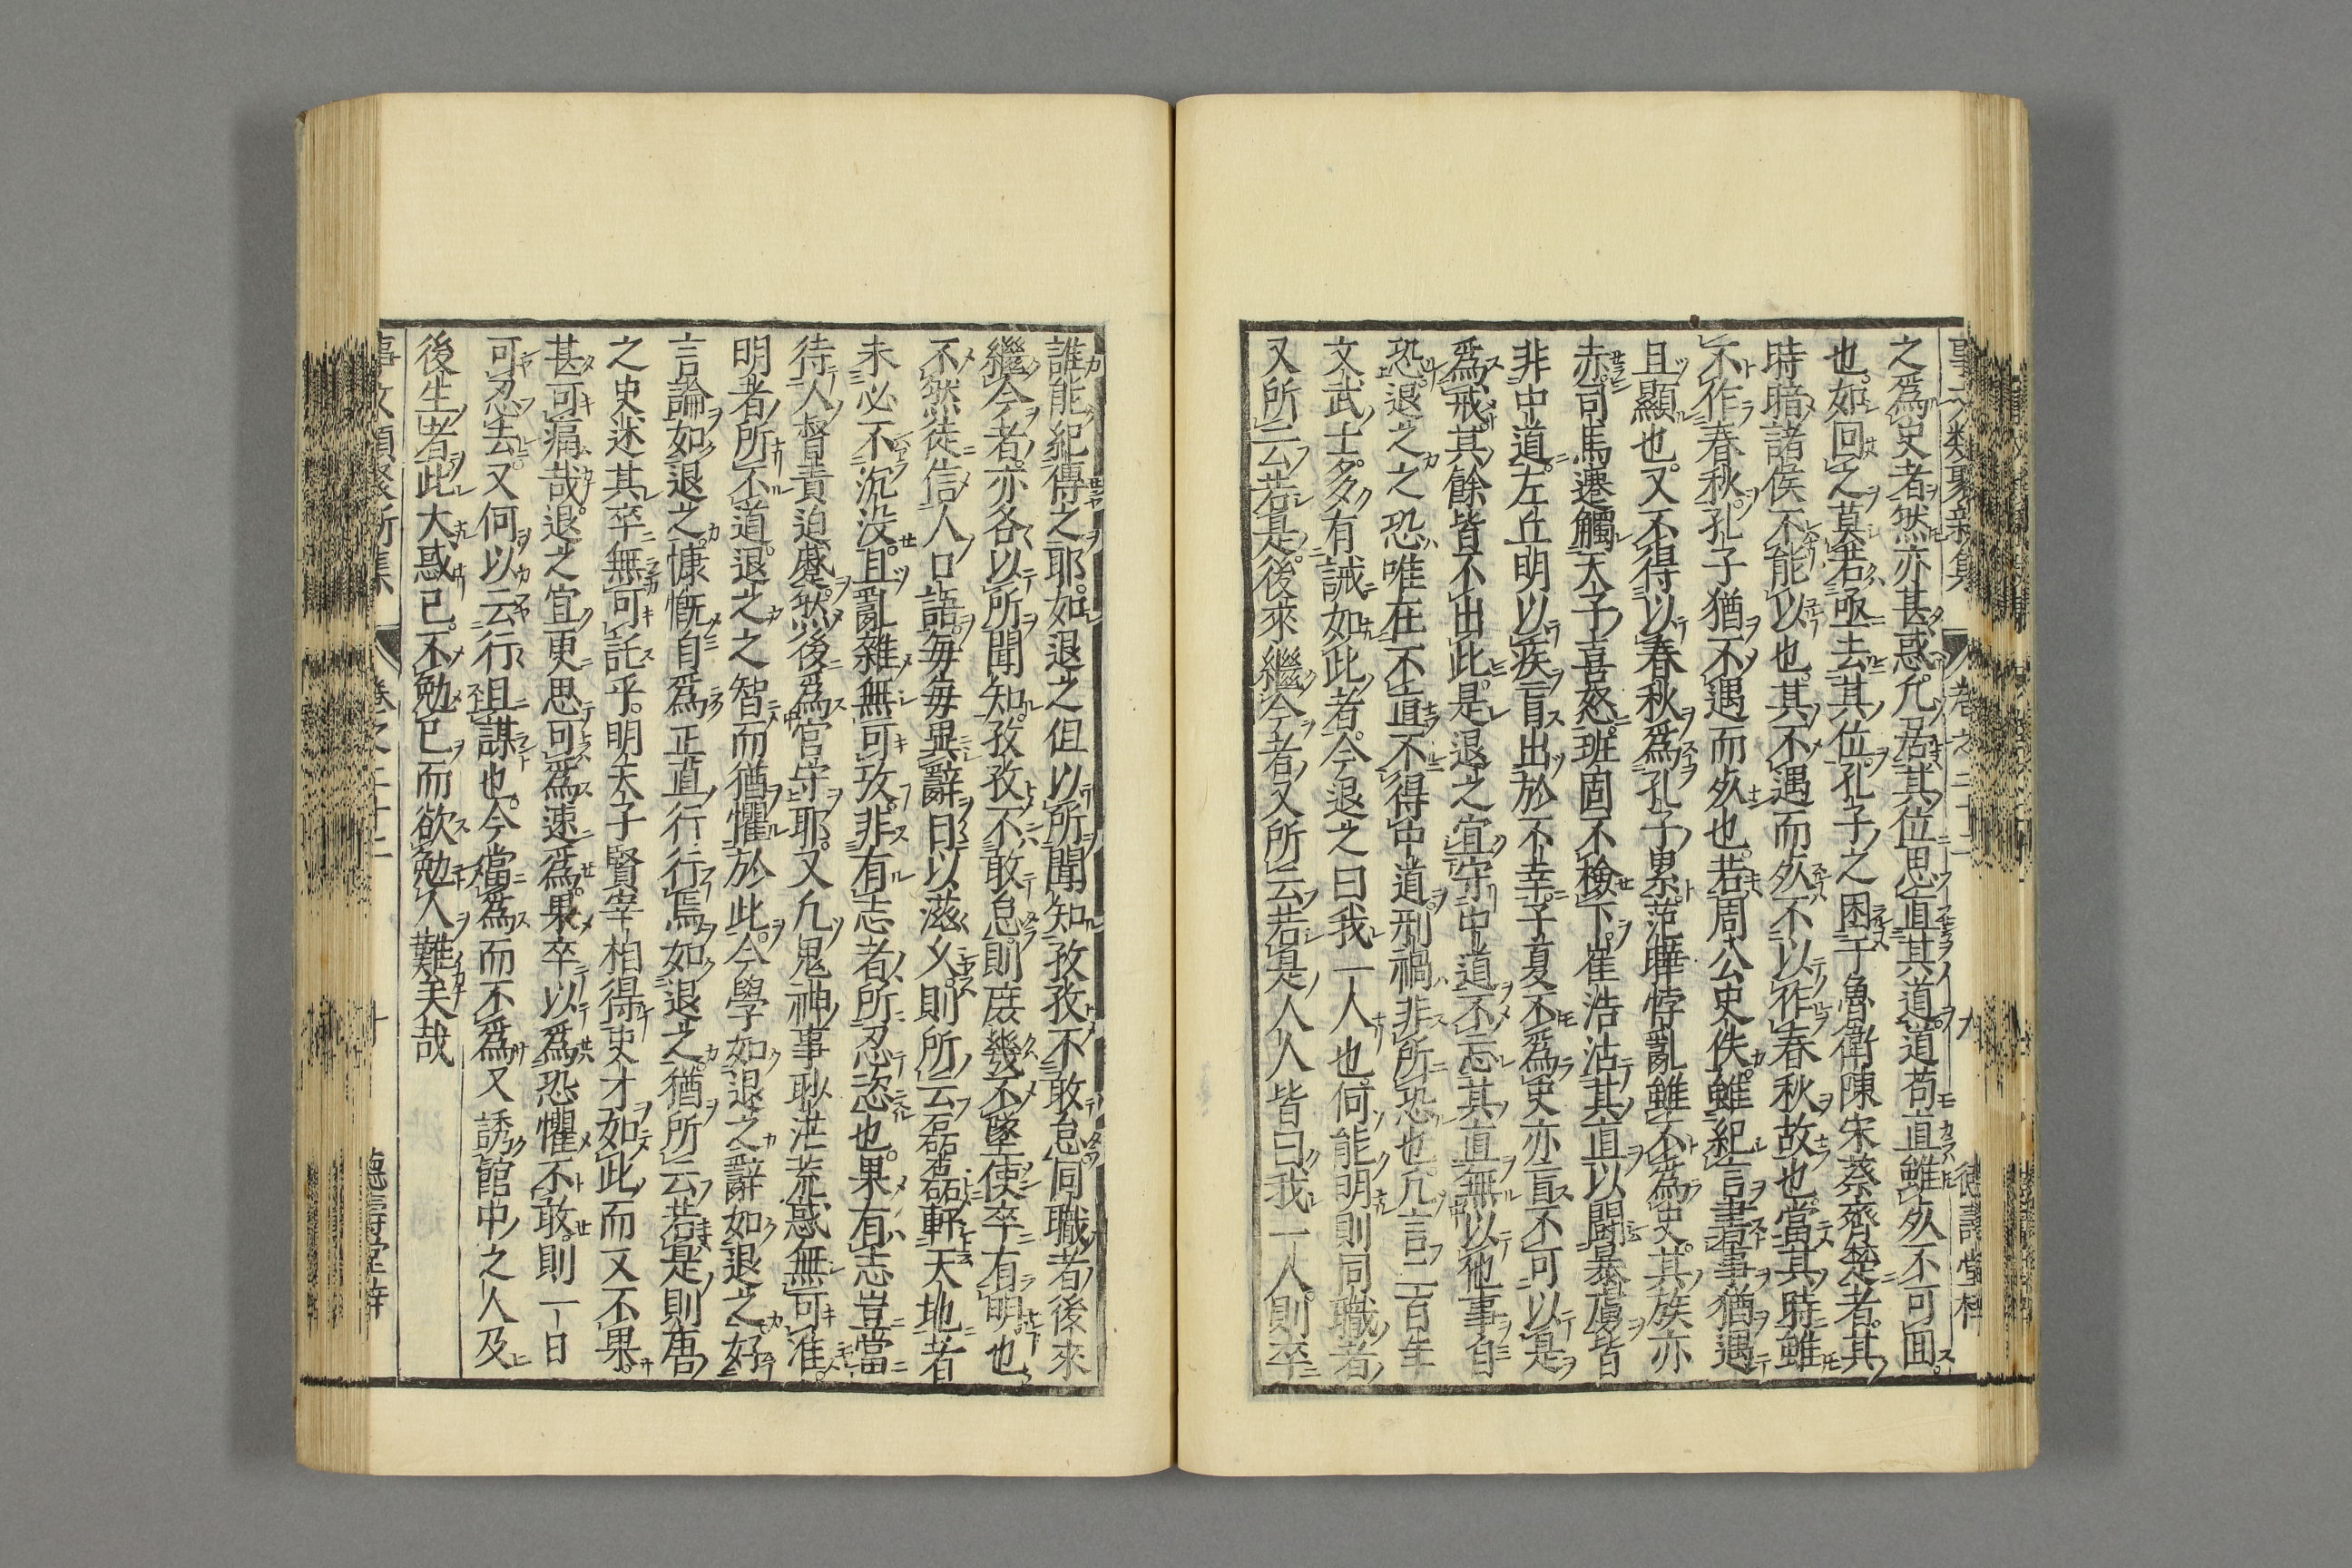 事文类聚新集 卷之二十二 九 德壽堂梓
之為史者然亦甚惑凢居其位思直其道道苟直雖死不可囬
也如回之莫若亟去其位孔子之困于魯衛陳宋蔡齊楚者其
時暗諸侯不能以也其不遇而死不以作春秋故也當其時雖
不作春秋孔子猶不遇而死也若周公史佚雖紀言書事猶遇
且顯也又不得以春秋為孔子累范曄悖亂雖不為史其族亦
赤司馬遷觸天子喜怒班固不檢下崔浩沽其直以闘暴虜皆
非中道左丘明以疾盲出於不幸子夏不為史亦盲不可以是
為戒其餘皆不出此是退之宜守中道不忘其直無以他事自
恐退之之恐唯在不直不得中道刑禍非所恐也凢言二百年
文武士多有誠如此者今退之曰我一人也何能明則同職者
又所云若是後來繼今者又所云若是人人皆曰我一人則卒
誰能紀傳之耶如退之但以所聞知孜孜不敢怠同職者後來
繼今者亦各以所聞知孜孜不敢怠則庶幾不墜使卒有明也
不然徒信人口語每每異辭日以滋乆則所云磊磊軒天地者
未必不沉没且亂雜無可攷非有志者所忍恣也果有志豈當
待人督責迫蹙然後為官守耶又凢鬼神事眇茫荒惑無可准
明者所不道退之之智而猶懼於此今學如退之辭如退之好
言論如退之慷慨自為正直行行焉如退之猶所云若是則唐
之史述其卒無可託乎明天子賢宰相得史才如此而又不果
甚可痛哉退之宜更思可為速為果卒以為恐懼不敢則一日
可忍去又何以云行且謀也今當為而不為又誘館中之人及
後生者此大惑已不勉已而欲勉人難矣哉
事文類聚新集 卷之二十二 十 德壽堂梓